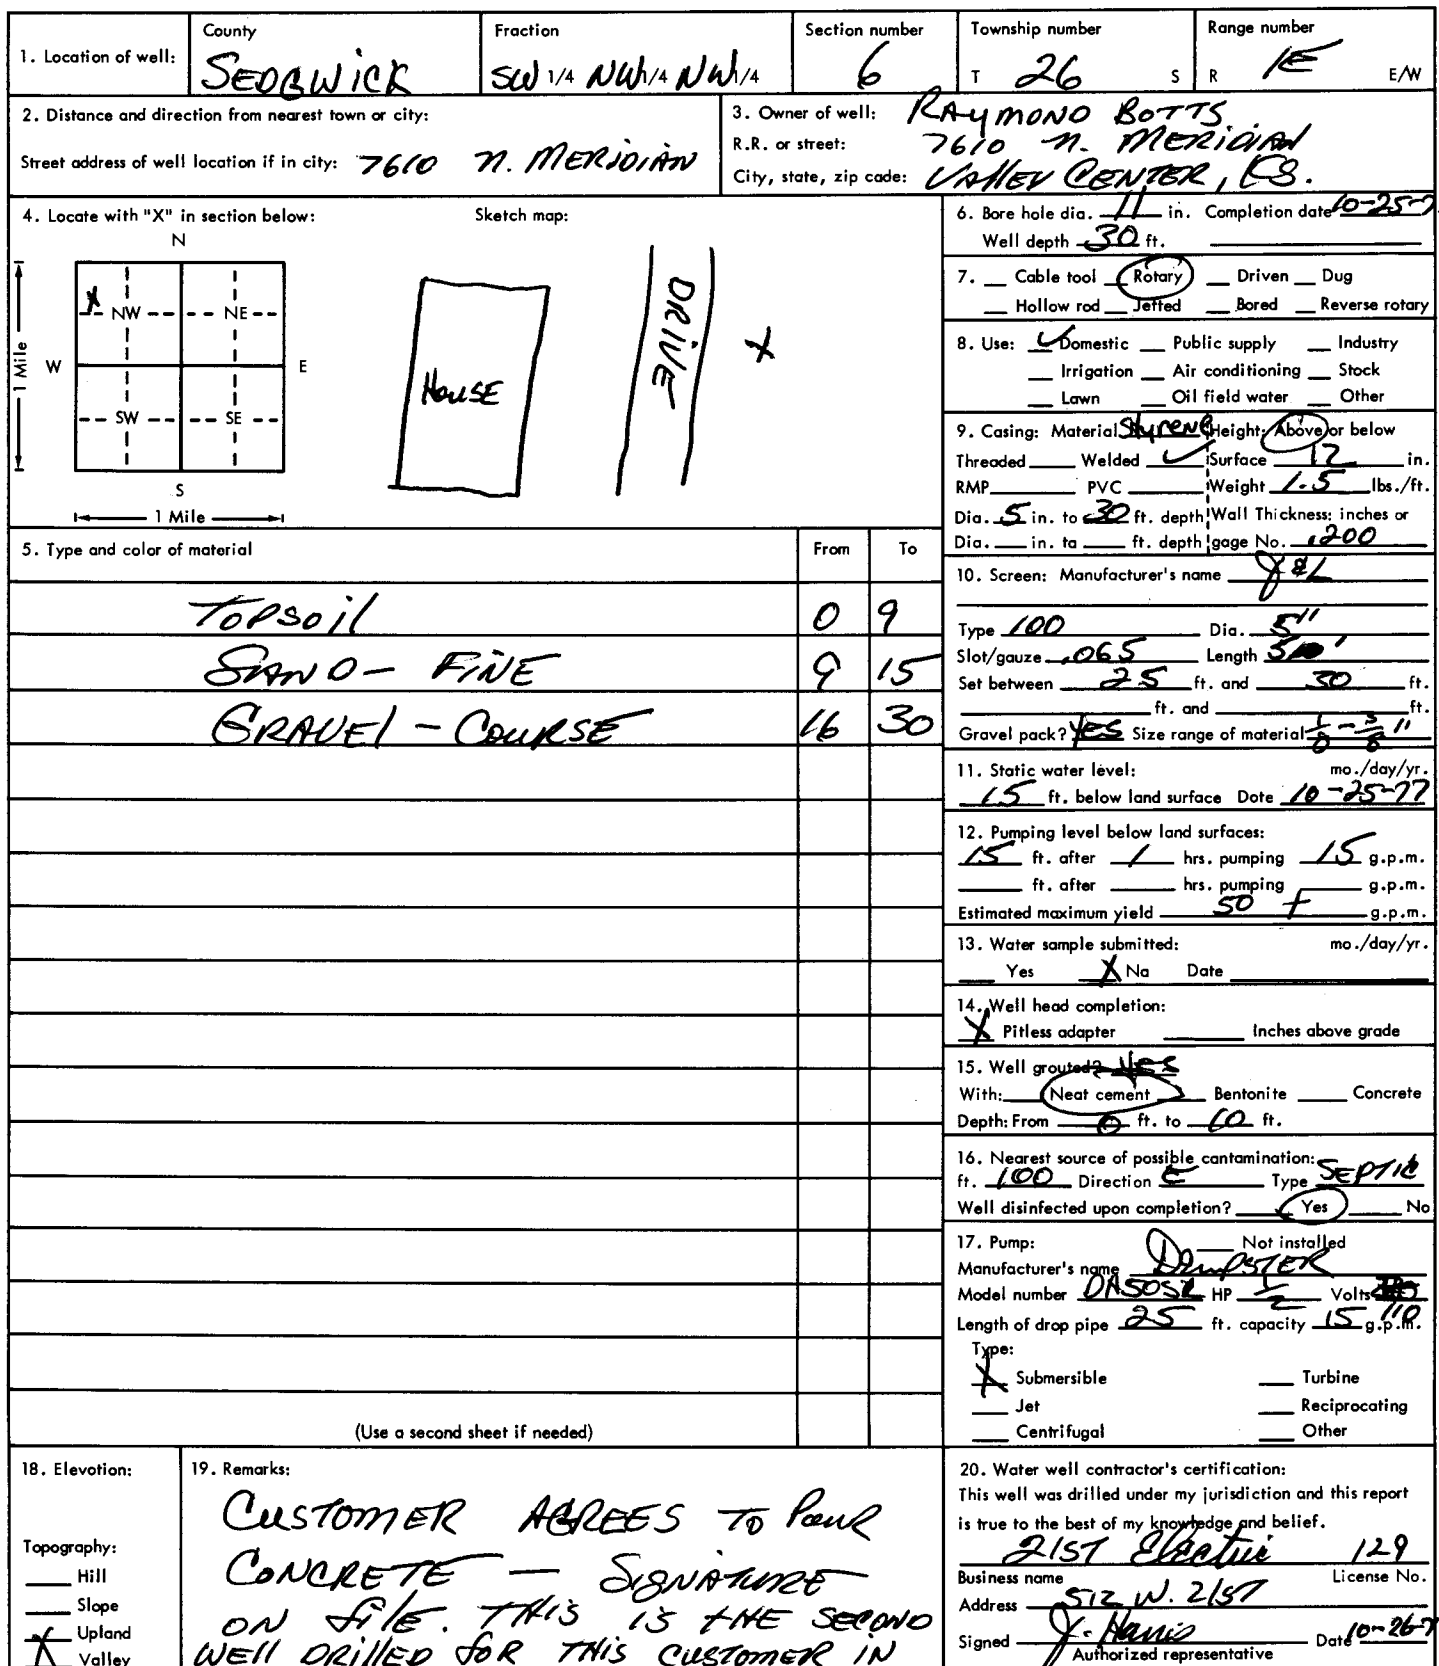 1. Location of well: County SEDGWICK Fraction SW 1/4 NW 1/4 NW 1/4 Section number 6 Township number T 26 S Range number R 1E E/W
2. Distance and direction from nearest town or city:
Street address of well location if in city: 7610 N. MERIDIAN
3. Owner of well: RAYMOND BOTTS
R.R. or street: 7610 N. MERIDIAN
City, state, zip code: VALLEY CENTER, KS.
4. Locate with "X" in section below: Sketch map:
N
X
NW NE
W E
SW SE
S
1 Mile
1 Mile
HOUSE
DRIVE
X
5. Type and color of material From To
TOPSOIL 0 9
SAND - FINE 9 15
GRAVEL - COURSE 16 30
(Use a second sheet if needed)
6. Bore hole dia. 11 in. Completion date 10-25-7
Well depth 30 ft.
7. Cable tool Rotary Driven Dug
Hollow rod Jetted Bored Reverse rotary
8. Use: Domestic Public supply Industry
Irrigation Air conditioning Stock
Lawn Oil field water Other
9. Casing: Material Styrene Height: Above or below
Threaded Welded Surface 12 in.
RMP PVC Weight 1.5 lbs./ft.
Dia. 5 in. to 30 ft. depth Wall Thickness: inches or
Dia. in. ta ft. depth gage No. .200
10. Screen: Manufacturer's name J & L
Type 100 Dia. 5"
Slot/gauze .065 Length 5'
Set between 25 ft. and 30 ft.
ft. and ft.
Gravel pack? YES Size range of material 1/8 - 3/8"
11. Static water level: mo./day/yr.
15 ft. below land surface Dote 10-25-77
12. Pumping level below land surfaces:
15 ft. after 1 hrs. pumping 15 g.p.m.
ft. after hrs. pumping g.p.m.
Estimated maximum yield 50 + g.p.m.
13. Water sample submitted: mo./day/yr.
Yes X Na Date
14. Well head completion:
X Pitless adapter Inches above grade
15. Well grouted? YES
With: Neat cement Bentonite Concrete
Depth: From 0 ft. to 10 ft.
16. Nearest source of possible cantamination:
ft. 100 Direction E Type SEPTIC
Well disinfected upon completion? Yes No
17. Pump: Not installed
Manufacturer's name DEMPSTER
Model number HP 1/2 Volts 110
Length of drop pipe 25 ft. capacity 15 g.p.m.
Type:
X Submersible Turbine
Jet Reciprocating
Centrifugal Other
18. Elevotion:
Topography:
Hill
Slope
Upland
X Valley
19. Remarks:
CUSTOMER AGREES TO POUR
CONCRETE - SIGNATURE
ON FILE. THIS IS THE SECOND
WELL DRILLED FOR THIS CUSTOMER IN
20. Water well contractor's certification:
This well was drilled under my jurisdiction and this report
is true to the best of my knowledge and belief.
21ST Electric 129
Business name License No.
Address 512 W. 21ST
Signed J. Harris Date 10-26-7
Authorized representative